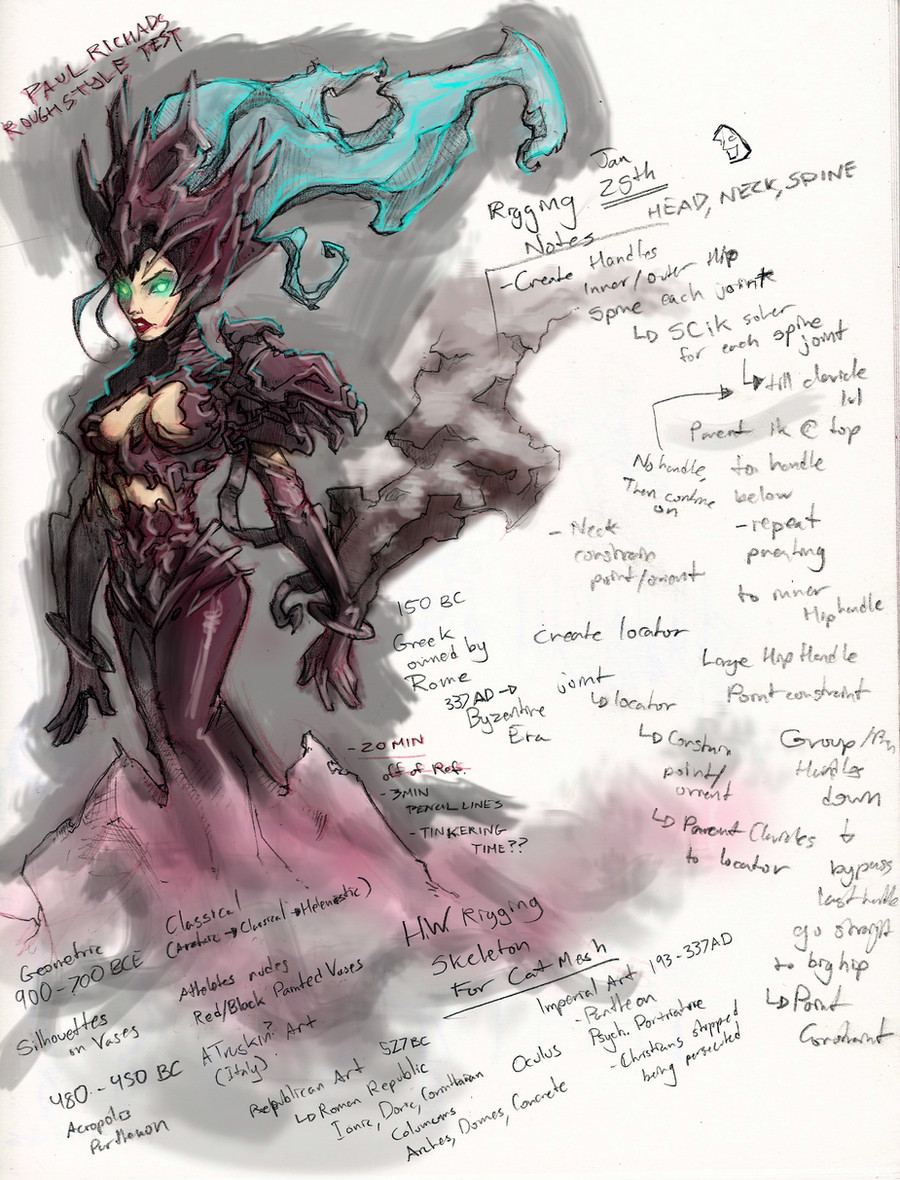 PAUL RICHADS
ROUGH STYLE TEST
Jan
25th
Rigging
Notes
HEAD, NECK, SPINE
-Create Handles
inner/outer Hip
spine each joint*
↳ SCik solver
for each spine
joint
↳ till clavicle
lvl
Parent ik @ top
to handle
below
No handle,
Then continue
on
-repeat
to inner
Hip handle
- Neck
constrain
point/orient
create locator
joint
↳ locator
↳ Constrain
point/
orient
↳ Parent Clavicles
to locator
Large Hip Handle
Point constraint
Handles
down
↓
bypass
last handle
go straight
to big hip
↳ Point
Constraint
150 BC
Greek
owned by
Rome
337 AD →
Byzentine
Era
- 20 MIN
off of Ref.
- 3MIN
PENCIL LINES
- TINKERING
TIME??
H.W. Rigging
Skeleton
For Cat Mesh
Geometric
900-700 BCE
Silhouettes
on Vases
480-450 BC
Acropolis
Parthenon
Classical
Atheletes nudes
Red/Black Painted Vases
?
ATruskin Art
(Italy)
Republican Art 527 BC
↳ Roman Republic
Ionic, Doric, Corinthian
Columns
Arches, Domes, Concrete
Oculus
Imperial Art 193-337AD
- Pantheon
Psych. Portriature
- Christians stopped
being persecuted